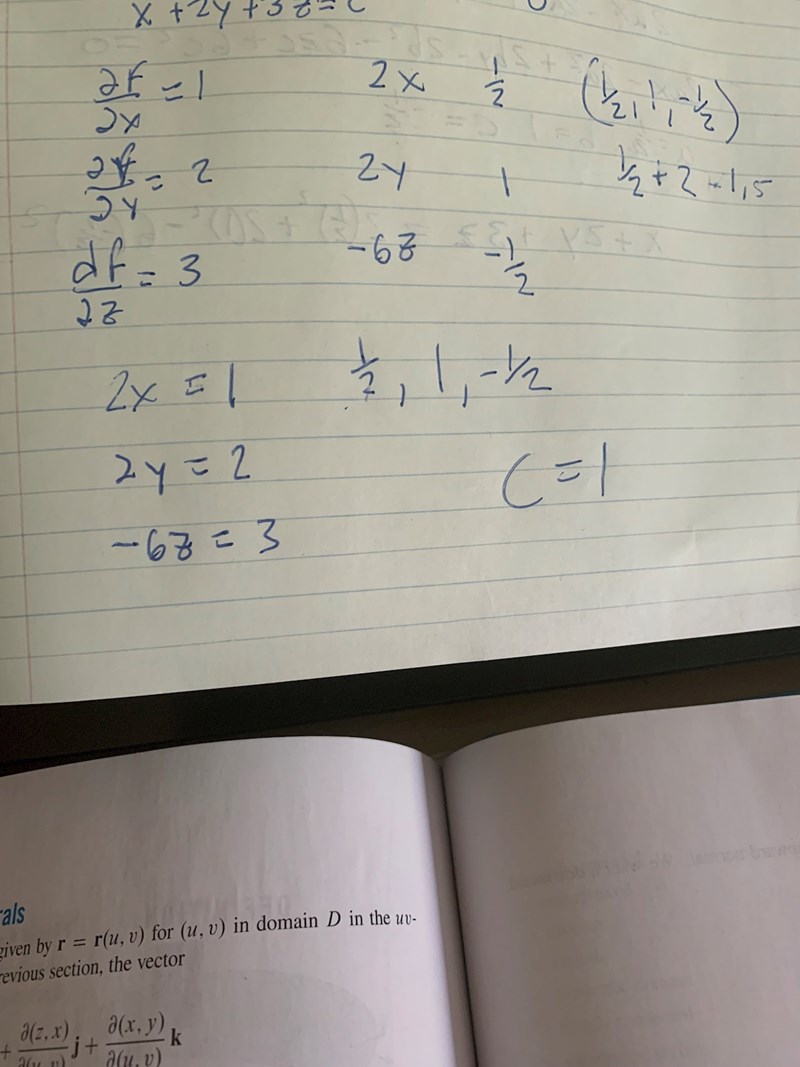 x + 2y + 3z = C
∂f/∂x = 1 2x 1/2 (1/2, 1, -1/2)
∂f/∂y = 2 2y 1 1/2 + 2 - 1,5
df/∂z = 3 -6z -1/2
2x = 1 1/2, 1, -1/2
2y = 2 C = 1
-6z = 3
als
given by r = r(u, v) for (u, v) in domain D in the uv-
revious section, the vector
+ ∂(z, x)/∂(u, v) j + ∂(x, y)/∂(u, v) k